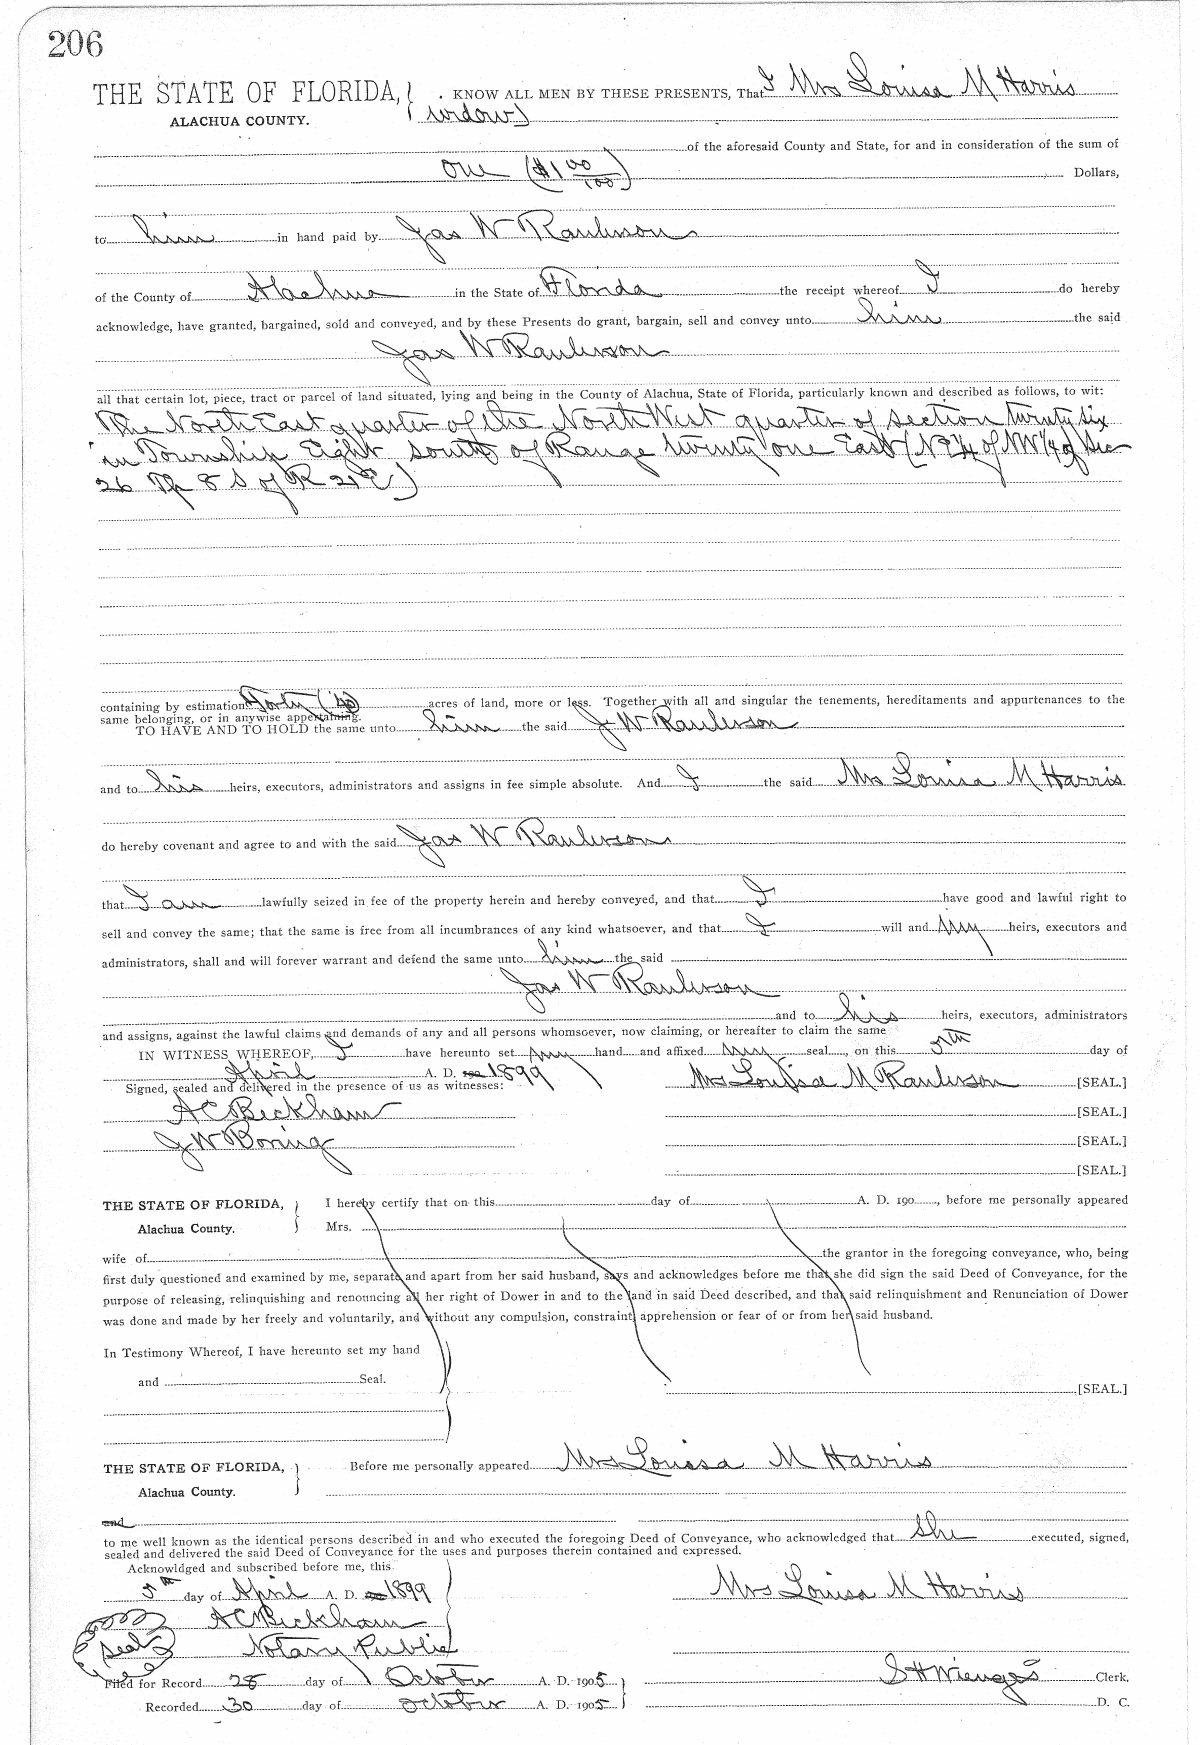 206
THE STATE OF FLORIDA, KNOW ALL MEN BY THESE PRESENTS, That I Mrs Louisa M Harris
ALACHUA COUNTY. widow)
of the aforesaid County and State, for and in consideration of the sum of
one ($1 00/100) Dollars,
to him in hand paid by Jas W Raulerson
of the County of Alachua in the State of Florida the receipt whereof I do hereby
acknowledge, have granted, bargained, sold and conveyed, and by these Presents do grant, bargain, sell and convey unto him the said
Jas W Raulerson
all that certain lot, piece, tract or parcel of land situated, lying and being in the County of Alachua, State of Florida, particularly known and described as follows, to wit:
The North East quarter of the North West quarter of section twenty six
in Township Eight south of Range twenty one East (NE 1/4 of NW 1/4 of Sec
26 Tp 8 S of R 21 E)
containing by estimation Forty (40) acres of land, more or less. Together with all and singular the tenements, hereditaments and appurtenances to the
same belonging, or in anywise appertaining.
TO HAVE AND TO HOLD the same unto him the said J W Raulerson
and to his heirs, executors, administrators and assigns in fee simple absolute. And I the said Mrs Louisa M Harris
do hereby covenant and agree to and with the said Jas W Raulerson
that I am lawfully seized in fee of the property herein and hereby conveyed, and that I have good and lawful right to
sell and convey the same; that the same is free from all incumbrances of any kind whatsoever, and that I will and my heirs, executors and
administrators, shall and will forever warrant and defend the same unto him the said
Jas W Raulerson
and to his heirs, executors, administrators
and assigns, against the lawful claims and demands of any and all persons whomsoever, now claiming, or hereafter to claim the same
IN WITNESS WHEREOF, I have hereunto set my hand and affixed my seal, on this 5th day of
April A. D. 1899
Signed, sealed and delivered in the presence of us as witnesses: Mrs Louisa M Raulerson [SEAL.]
A C Beckham [SEAL.]
J W Boring [SEAL.]
[SEAL.]
THE STATE OF FLORIDA, I hereby certify that on this day of A. D. 190 , before me personally appeared
Alachua County. Mrs.
wife of the grantor in the foregoing conveyance, who, being
first duly questioned and examined by me, separate and apart from her said husband, says and acknowledges before me that she did sign the said Deed of Conveyance, for the
purpose of releasing, relinquishing and renouncing all her right of Dower in and to the land in said Deed described, and that said relinquishment and Renunciation of Dower
was done and made by her freely and voluntarily, and without any compulsion, constraint, apprehension or fear of or from her said husband.
In Testimony Whereof, I have hereunto set my hand
and Seal.
[SEAL.]
THE STATE OF FLORIDA, Before me personally appeared Mrs Louisa M Harris
Alachua County.
and
to me well known as the identical persons described in and who executed the foregoing Deed of Conveyance, who acknowledged that she executed, signed,
sealed and delivered the said Deed of Conveyance for the uses and purposes therein contained and expressed.
Acknowldged and subscribed before me, this
5th day of April A. D. 1899 Mrs Louisa M Harris
A C Beckham
Seal Notary Public
Filed for Record 28 day of October A. D. 1905 S H Wienges Clerk.
Recorded 30 day of October A. D. 1905 D. C.